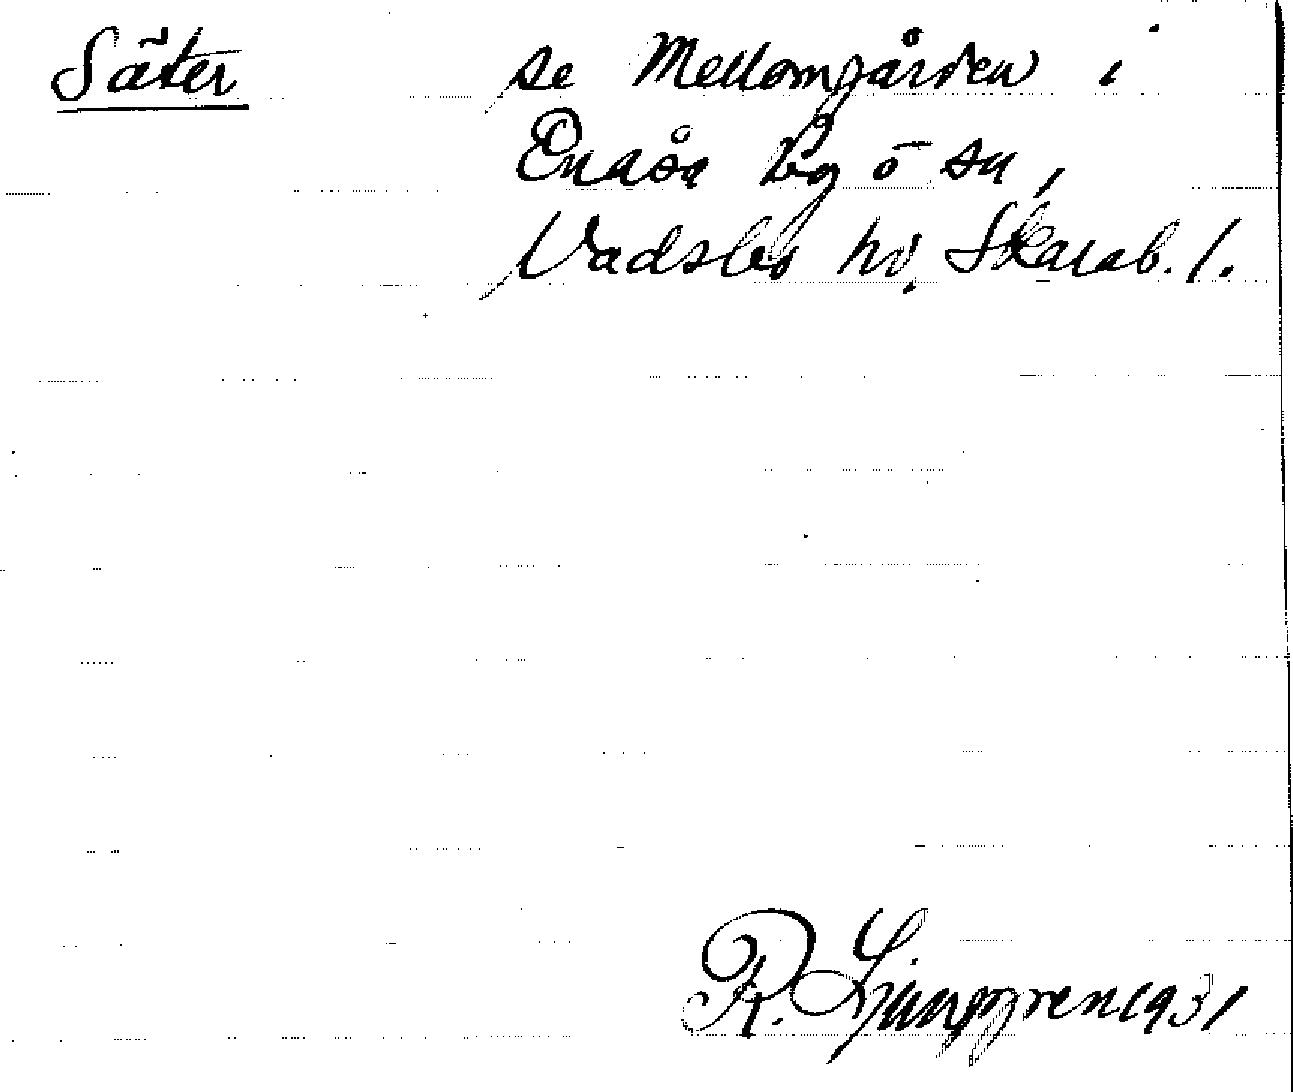 Säter se Mellomgården i
Enåsa by o sn,
Vadsbo hd, Skarab. l.
R. Ljunggren 1931